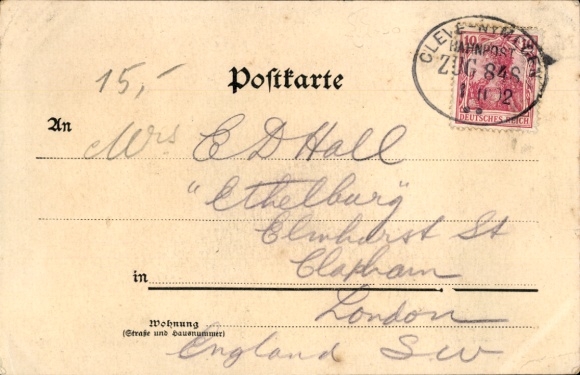 CLEVE-NYMEGEN
BAHNPOST
ZUG 848
10
DEUTSCHES REICH
15,-
Postkarte
An
Mrs E D Hall
"Ethelburg"
Elmhurst St
Clapham
in
London
Wohnung
(Straße und Hausnummer)
England SW